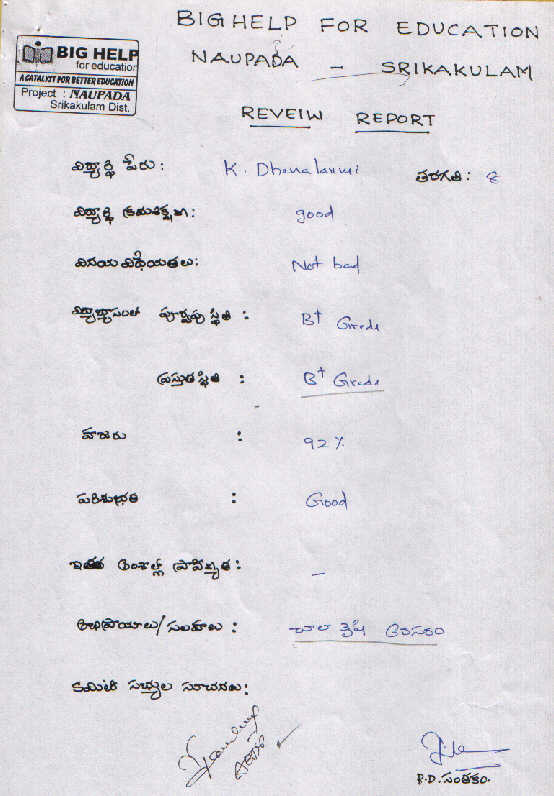 BIG HELP FOR EDUCATION
NAUPADA - SRIKAKULAM
BIG HELP
for education
A CATALYST FOR BETTER EDUCATION
Project : NAUPADA
Srikakulam Dist.
REVEIW REPORT
విద్యార్థి పేరు: K. Dhanalaxmi తరగతి: 8
విద్యార్థి క్రమశిక్షణ: good
వినయ విధేయతలు: Not bad
పూర్వపు స్థితి : B+ Grade
ప్రస్తుత స్థితి : B+ Grade
హాజరు : 92%
పరిశుభ్రత : Good
ఇతర అంశాల్లో ప్రావీణ్యత: -
అభిప్రాయాలు/సంతకాలు : చాలా కృషి అవసరం
కమిటీ సభ్యుల సూచనలు:
P.D. సంతకం.